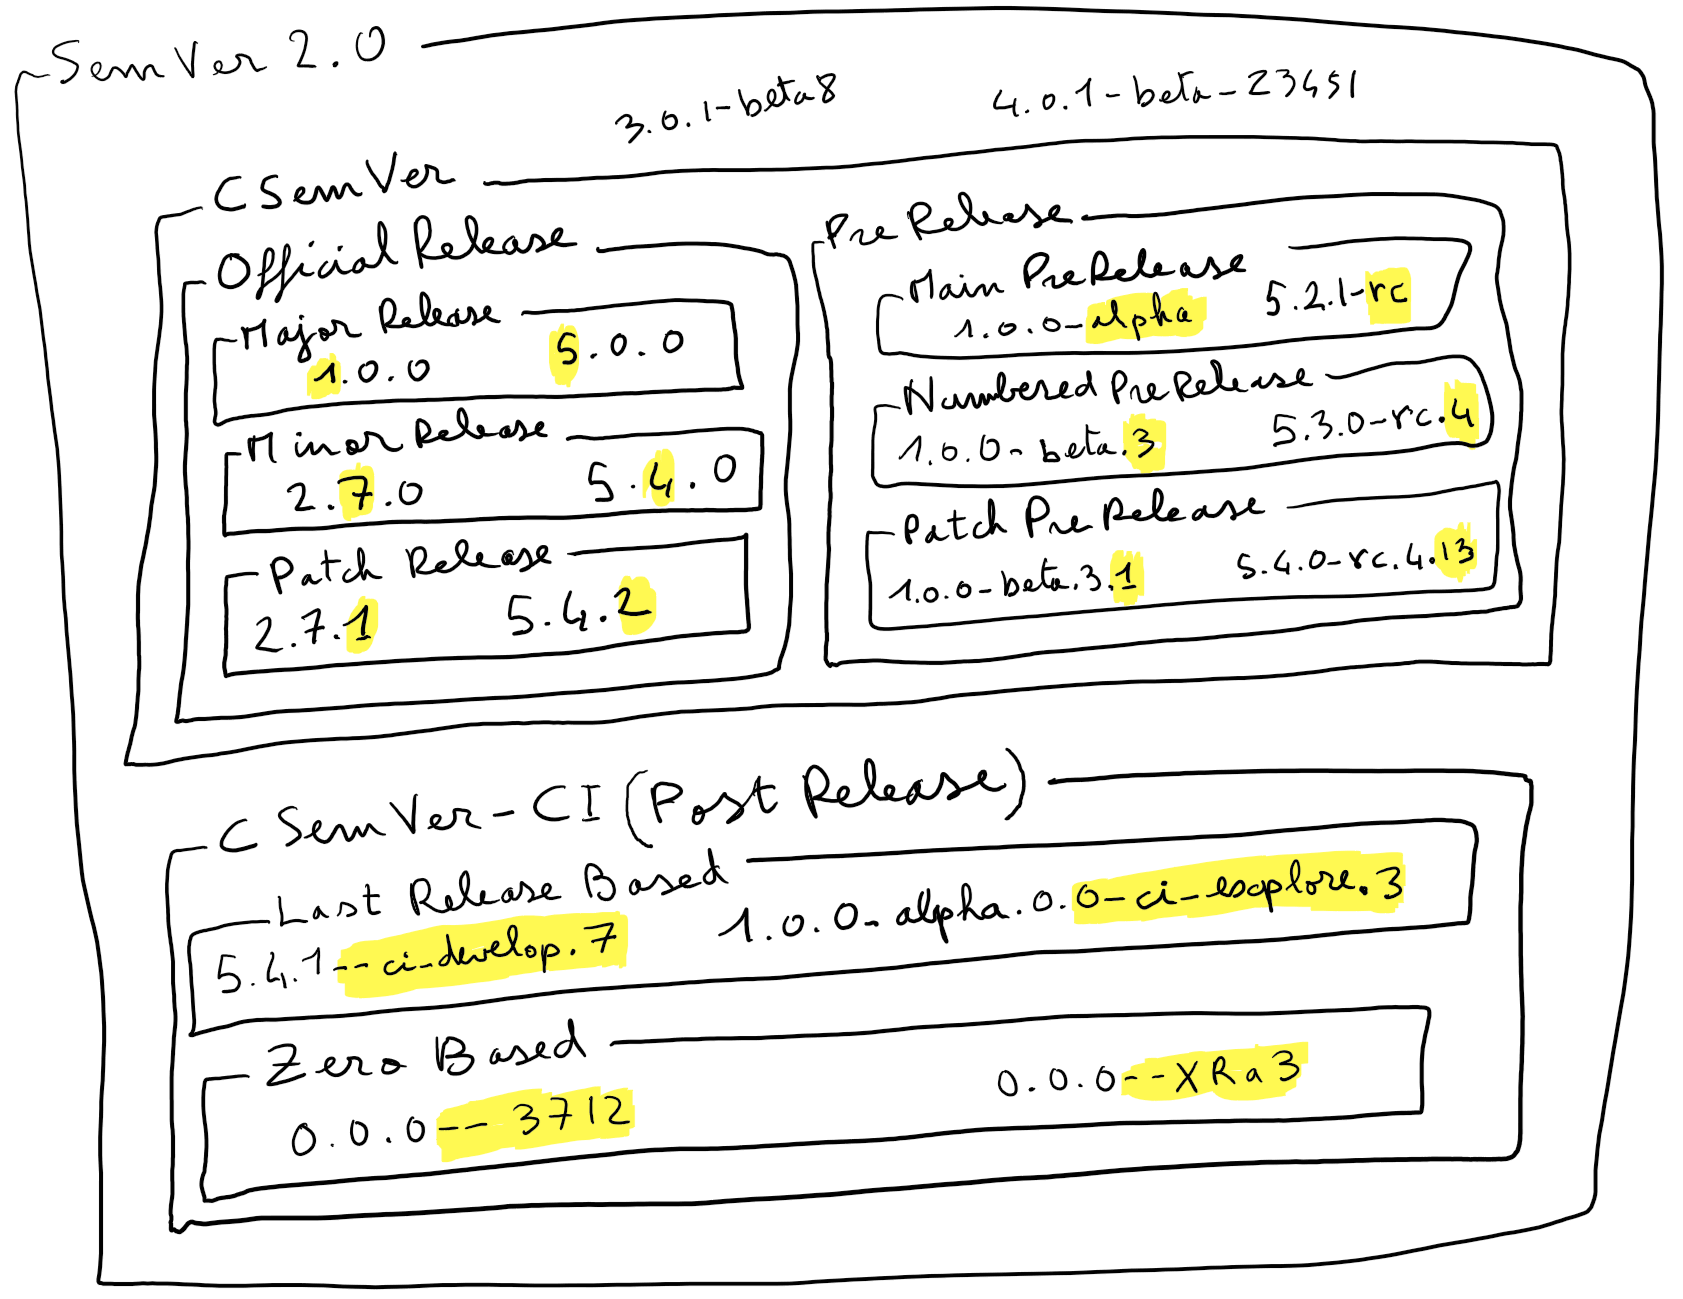 SemVer 2.0
3.0.1-beta8
4.0.1-beta-23451
CSemVer
Official Release
Major Release
1.0.0
5.0.0
Minor Release
2.7.0
5.4.0
Patch Release
2.7.1
5.4.2
PreRelease
Main PreRelease
1.0.0-alpha
5.2.1-rc
Numbered PreRelease
1.0.0-beta.3
5.3.0-rc.4
Patch PreRelease
1.0.0-beta.3.1
5.4.0-rc.4.13
CSemVer-CI (Post Release)
Last Release Based
5.4.1--ci-develop.7
1.0.0-alpha.0.0-ci-explore.3
Zero Based
0.0.0--3712
0.0.0--XRa3